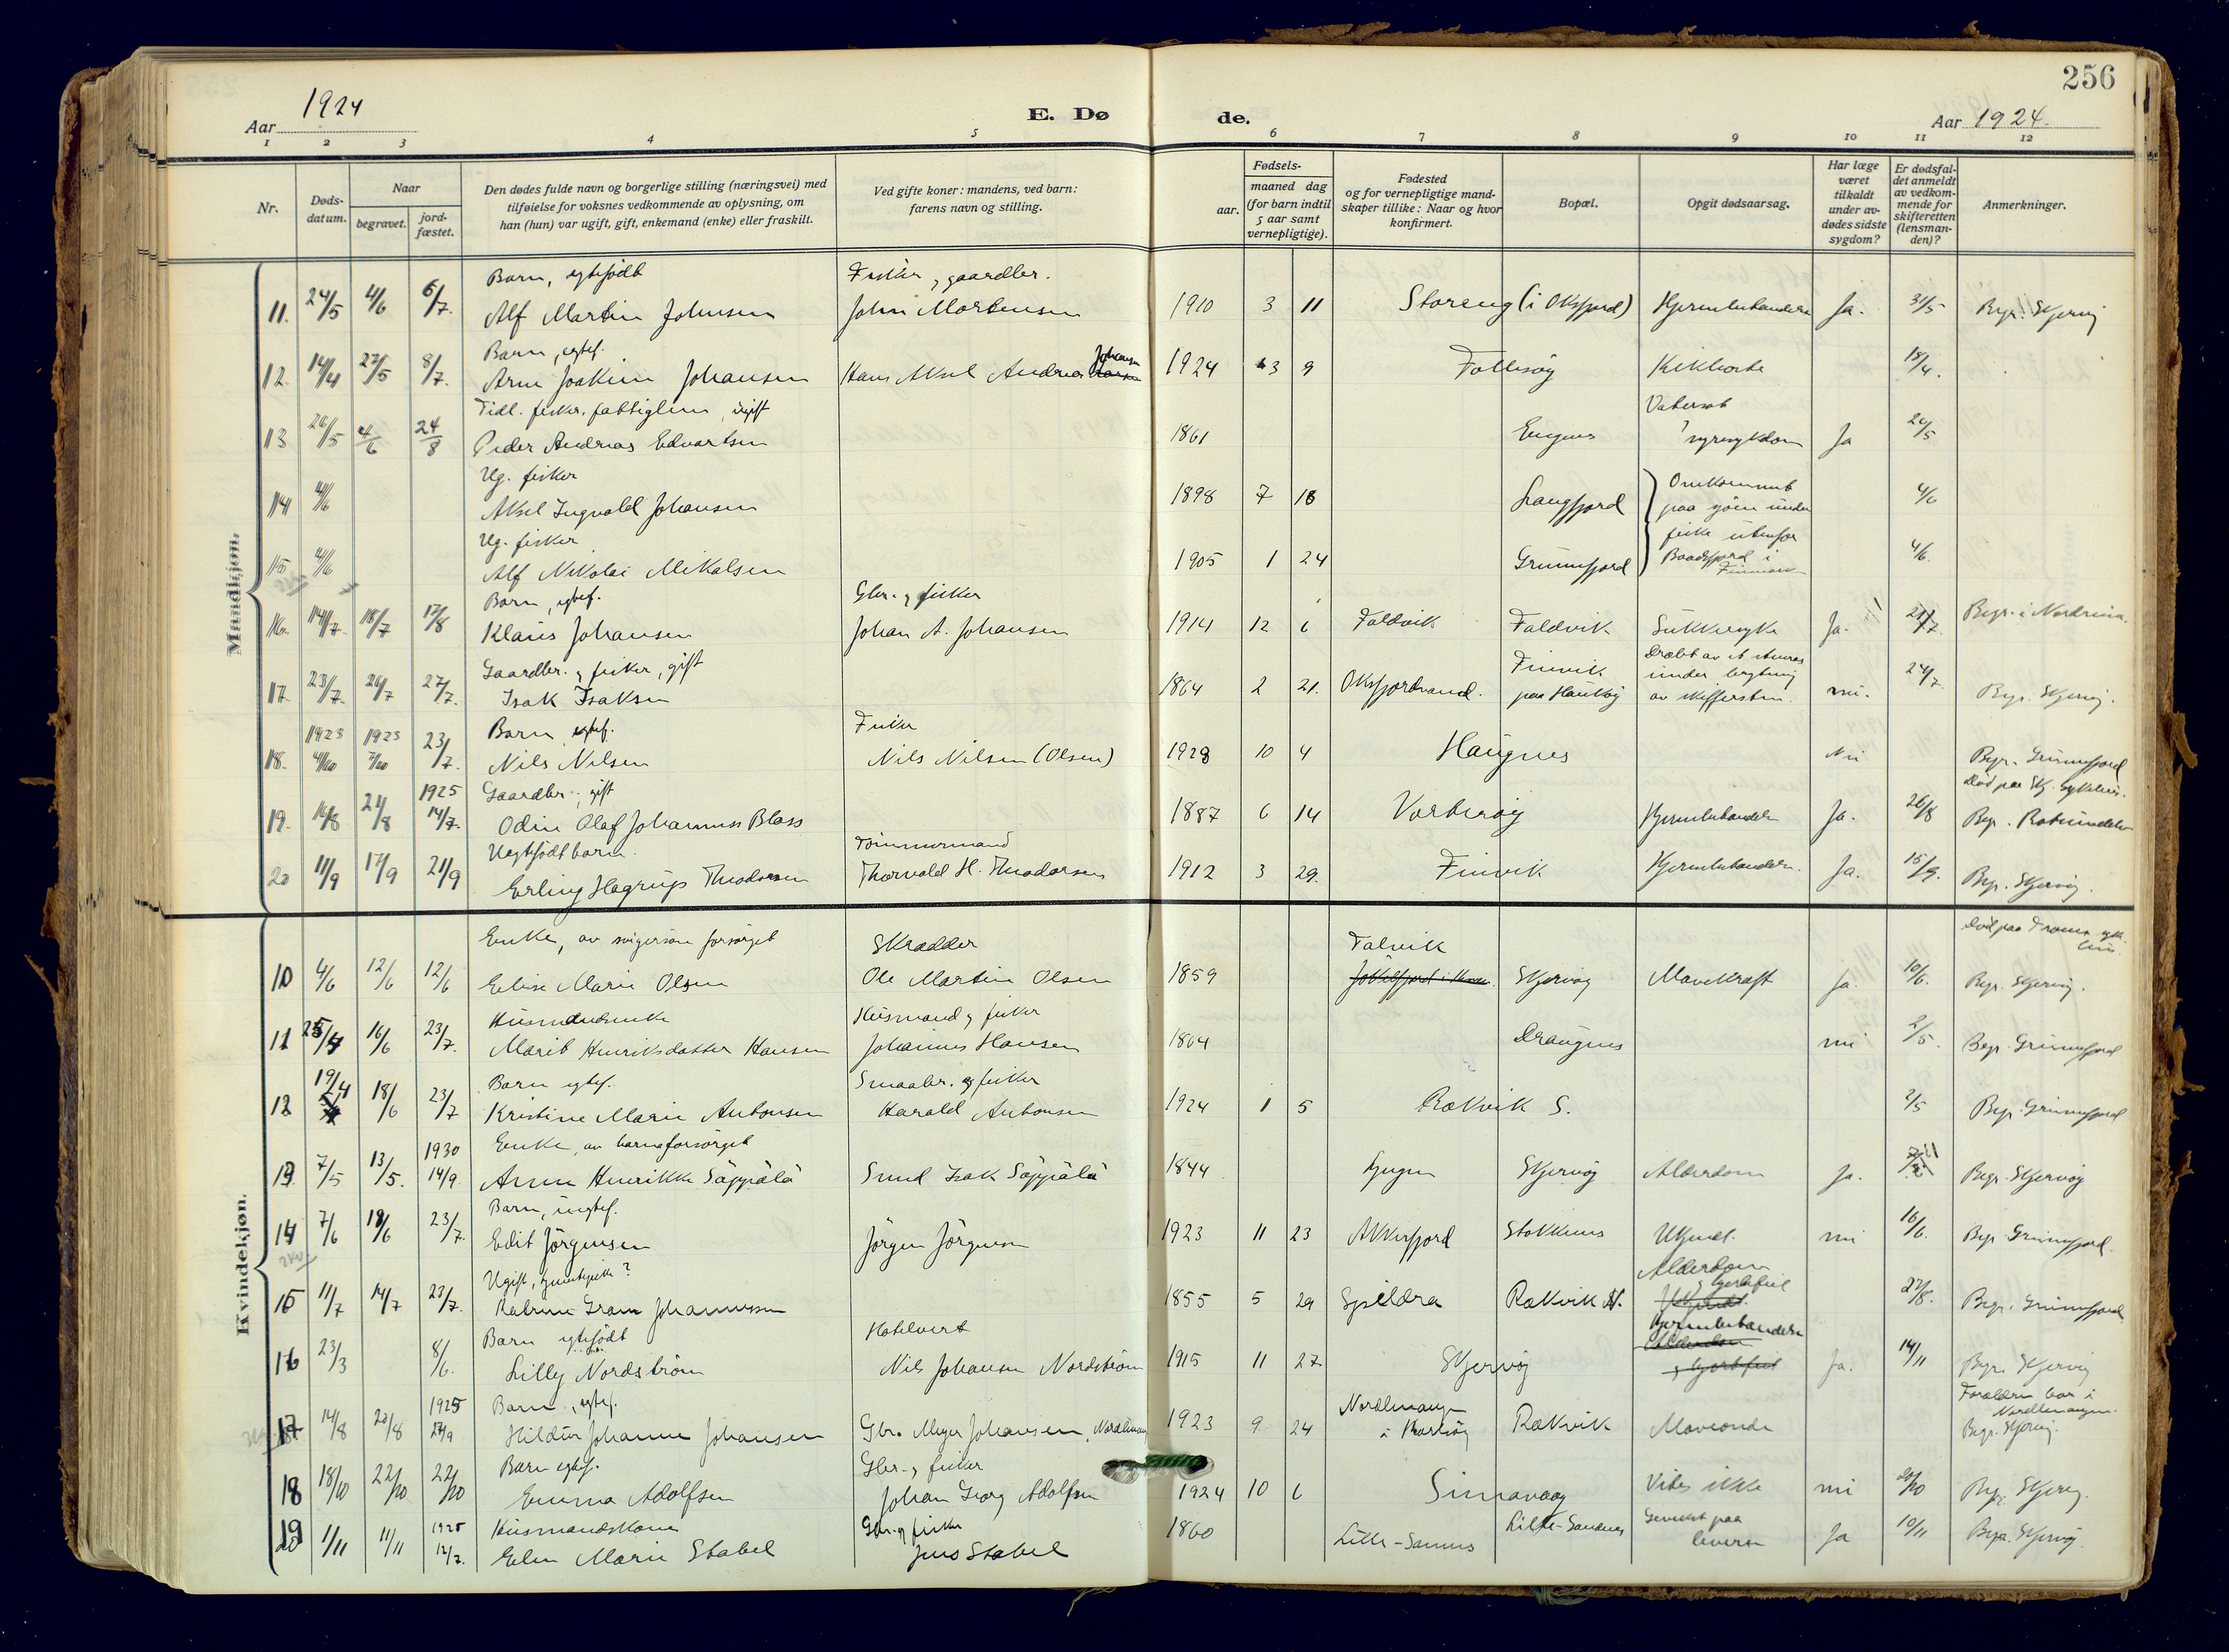 256
Aar 1924
E. Dø
de.
Aar 1924.
1 2 3 4 5 6 7 8 9 10 11 12
Nr.
Døds-
datum.
Naar
begravet.
jord-
fæstet.
Den dødes fulde navn og borgerlige stilling (næringsvei) med
tilføielse for voksnes vedkommende av oplysning, om
han (hun) var ugift, gift, enkemand (enke) eller fraskilt.
Ved gifte koner: mandens, ved barn:
farens navn og stilling.
Fødsels-
aar.
maaned dag
(for barn indtil
5 aar samt
vernepligtige).
Fødested
og for vernepligtige mand-
skaper tillike: Naar og hvor
konfirmert.
Bopæl.
Opgit dødsaarsag.
Har læge
været
tilkaldt
under av-
dødes sidste
sygdom?
Er dødsfal-
det anmeldt
av vedkom-
mende for
skifteretten
(lensman-
den)?
Anmerkninger.
Mandkjøn.
Barn, egtefödt Fisker, gaardbr.
11. 24/5 4/6 6/7. Alf Martin Johnsen John Mortensen 1910 3 11 Storeng (i Oksfjord) Hjernebetændelse Ja. 31/5 Begr. Skjervöy
Barn, egtef.
12. 14/4 27/5 8/7. Arne Joakim Johansen Hans Aksel Andreas Johansen 1924 3 9 Follesöy Kikhoste 15/4.
Tidl. fisker, fattiglem, ugift Vatersot
13 26/5 4/6 24/8 Peder Andreas Edvartsen 1861 Engnes nyresykdom Ja 26/5
Ug. fisker Omkommet
14 4/6 Aksel Ingvald Johansen 1898 7 18 Langfjord paa sjöen under 4/6
Ug. fisker fiske utenfor
15 4/6 Alf Nikolai Mikalsen 1905 1 24 Grunnfjord Baadsfjord i 4/6
Finmark
Barn, egtef. Gbr. og fisker
16. 14/7. 18/7 17/8 Klaus Johansen Johan A. Johansen 1914 12 6 Taldvik Taldvik Sukkersyke Ja. 21/7. Begr. i Nordreisa.
Gaardbr. og fisker, gift Finvik Dræbt av et stenras
17. 23/7. 26/7 27/7. Isak Isaksen 1864 2 21. Oksfjordvand. paa Hauköy under brytning av skiffersten. nei. 24/7. Begr. Skjervöy.
1923 1923 Barn, egtef. Fisker
18. 4/10 7/10 23/7. Nils Nilsen Nils Nilsen (Olsen) 1923 10 4 Haugnes Nei Begr. Grunnfjord
1925 Gaardbr., gift Död paa Skj. sykehus.
19. 16/8 21/8 14/7. Odin Olaf Johannes Blass 1887 6 14 Vorteröy Hjernebetændelse Ja. 26/8 Begr. Rotsundelv
Uegtefödt barn. Tömmermand
20 11/9 17/9 21/9 Erling Hagrup Theodorsen Thorvald H. Theodorsen 1912 3 29. Finvik Hjernebetændelse. Ja. 15/9. Begr. Skjervöy.
Kvindekjøn.
Enke, av svigersön forsörget Skrædder Talvik Död paa Tromsö syke-
hus.
10 4/6 12/6 12/6 Elise Marie Olsen Ole Martin Olsen 1859 Skjervöy Mavekræft Ja. 10/6. Begr. Skjervöy.
Husmandsenke Husmand og fisker
11 25/4 16/6 23/7. Marit Henriksdatter Hansen Johannes Hansen 1864 Draugnes nei 2/5. Begr. Grunnfjord
Barn egtef. Smaabr. og fisker
12 19/4 18/6 23/7 Kristine Marie Antonsen Harald Antonsen 1924 1 5 Rækvik S. 2/5 Begr. Grunnfjord
1930 Enke, av barna forsörget
13 7/5 13/5. 14/9. Anne Henrikke Säppälä Smed Isak Säppälä 1844 Lyngen Skjervöy Alderdom Ja. Begr. Skjervöy
Barn, uegtef.
14 7/6 18/6 23/7. Edit Jörgensen Jörgen Jörgensen 1923 11 23 Akkarfjord Stakkenes Ukjendt. nei 16/6. Begr. Grunnfjord.
Ugift, tjenestepike? Alderdom
og hjertefeil
15 11/7 14/7 23/7. Katrine Gram Johannessen 1855 5 29 Spildra Rækvik N. 27/8. Begr. Grunnfjord
Barn egtefödt Hotelvert Hjernebetændelse
16 23/3 8/6. Lilly Nordström Nils Johansen Nordström 1915 11 27 Skjervöy Ja. 14/11 Begr. Skjervöy
1925 Barn, egtef. Nordlenangen Forældre bor i
Nordlenangen.
17 14/8 20/8 24/9 Hildur Johanne Johansen Gbr. Meyer Johansen, Nordlenangen 1923 9. 24 i Karlsöy Rækvik Maveonde Begr. Skjervöy.
Barn egtef. Gbr. og fisker
18 18/10 22/10 22/10 Emma Adolfsen Johan Georg Adolfsen 1924 10 6 Simavaag Vites ikke nei 20/10 Begr. Skjervöy.
1925 Husmandskone Gbr. og fisker Lille-Sandnes Gevekst paa
19 1/11 11/11 12/7. Elen Marie Stabel Jens Stabel 1860 leveren Ja 10/11 Begr. Skjervöy.